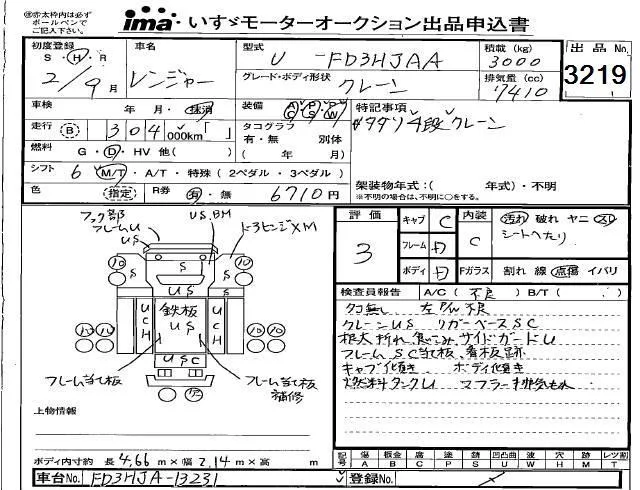 ㊟赤太枠内は必ず
ボールペンで
ご記入下さい。
ima・いすゞモーターオークション出品申込書
初度登録
S・H・R
2/9月
車名
レンジャー
型式
U-FD3HJAA
グレード・ボディ形状
クレーン
積載(kg)
3000
排気量(cc)
7410
出品No.
3219
車検
年・月・抹消
装備
A/C P/S P/W
特記事項
タダノ4段クレーン
走行 B 304,000km「 」
タコグラフ
有・無 別体
( 年 月)
燃料 G・D・HV 他( )
シフト 6 M/T・A/T・特殊(2ペダル・3ペダル)
架装物年式:( 年式)・不明
※不明の場合は、不明に○をする。
色 (指定) R券 有・無 6710円
フック部
フレームU
US
US,BM
ドラヒンジXM
10
S
10
S
S
S
US
UCH
鉄板
US
UCH
10
10
USC
フレーム当て板
フレーム当て板
補修
評価
3
キャブ C
フレーム D
ボディ D
内装
C
汚れ 破れ ヤニ スレ
シートへたり
Fガラス 割れ 線 点傷 イバリ
検査員報告 A/C(不良) B/T( )
タコ無し 左P/W不良
クレーンUS リガーベースSC
サイドガードU
フレームSC当て板、看板跡
キャブ傾き ボディ傾き
燃料タンクU マフラー排気もれ
上物情報
ボディ内寸 約 長 4.66 m×幅 2.14 m×高 m
記号
傷 板金 腐 塗 錆 凹凸曲 波 穴 跡 レツ割
A B C P S U W H M T
車台No. FD3HJA-13231
登録No.